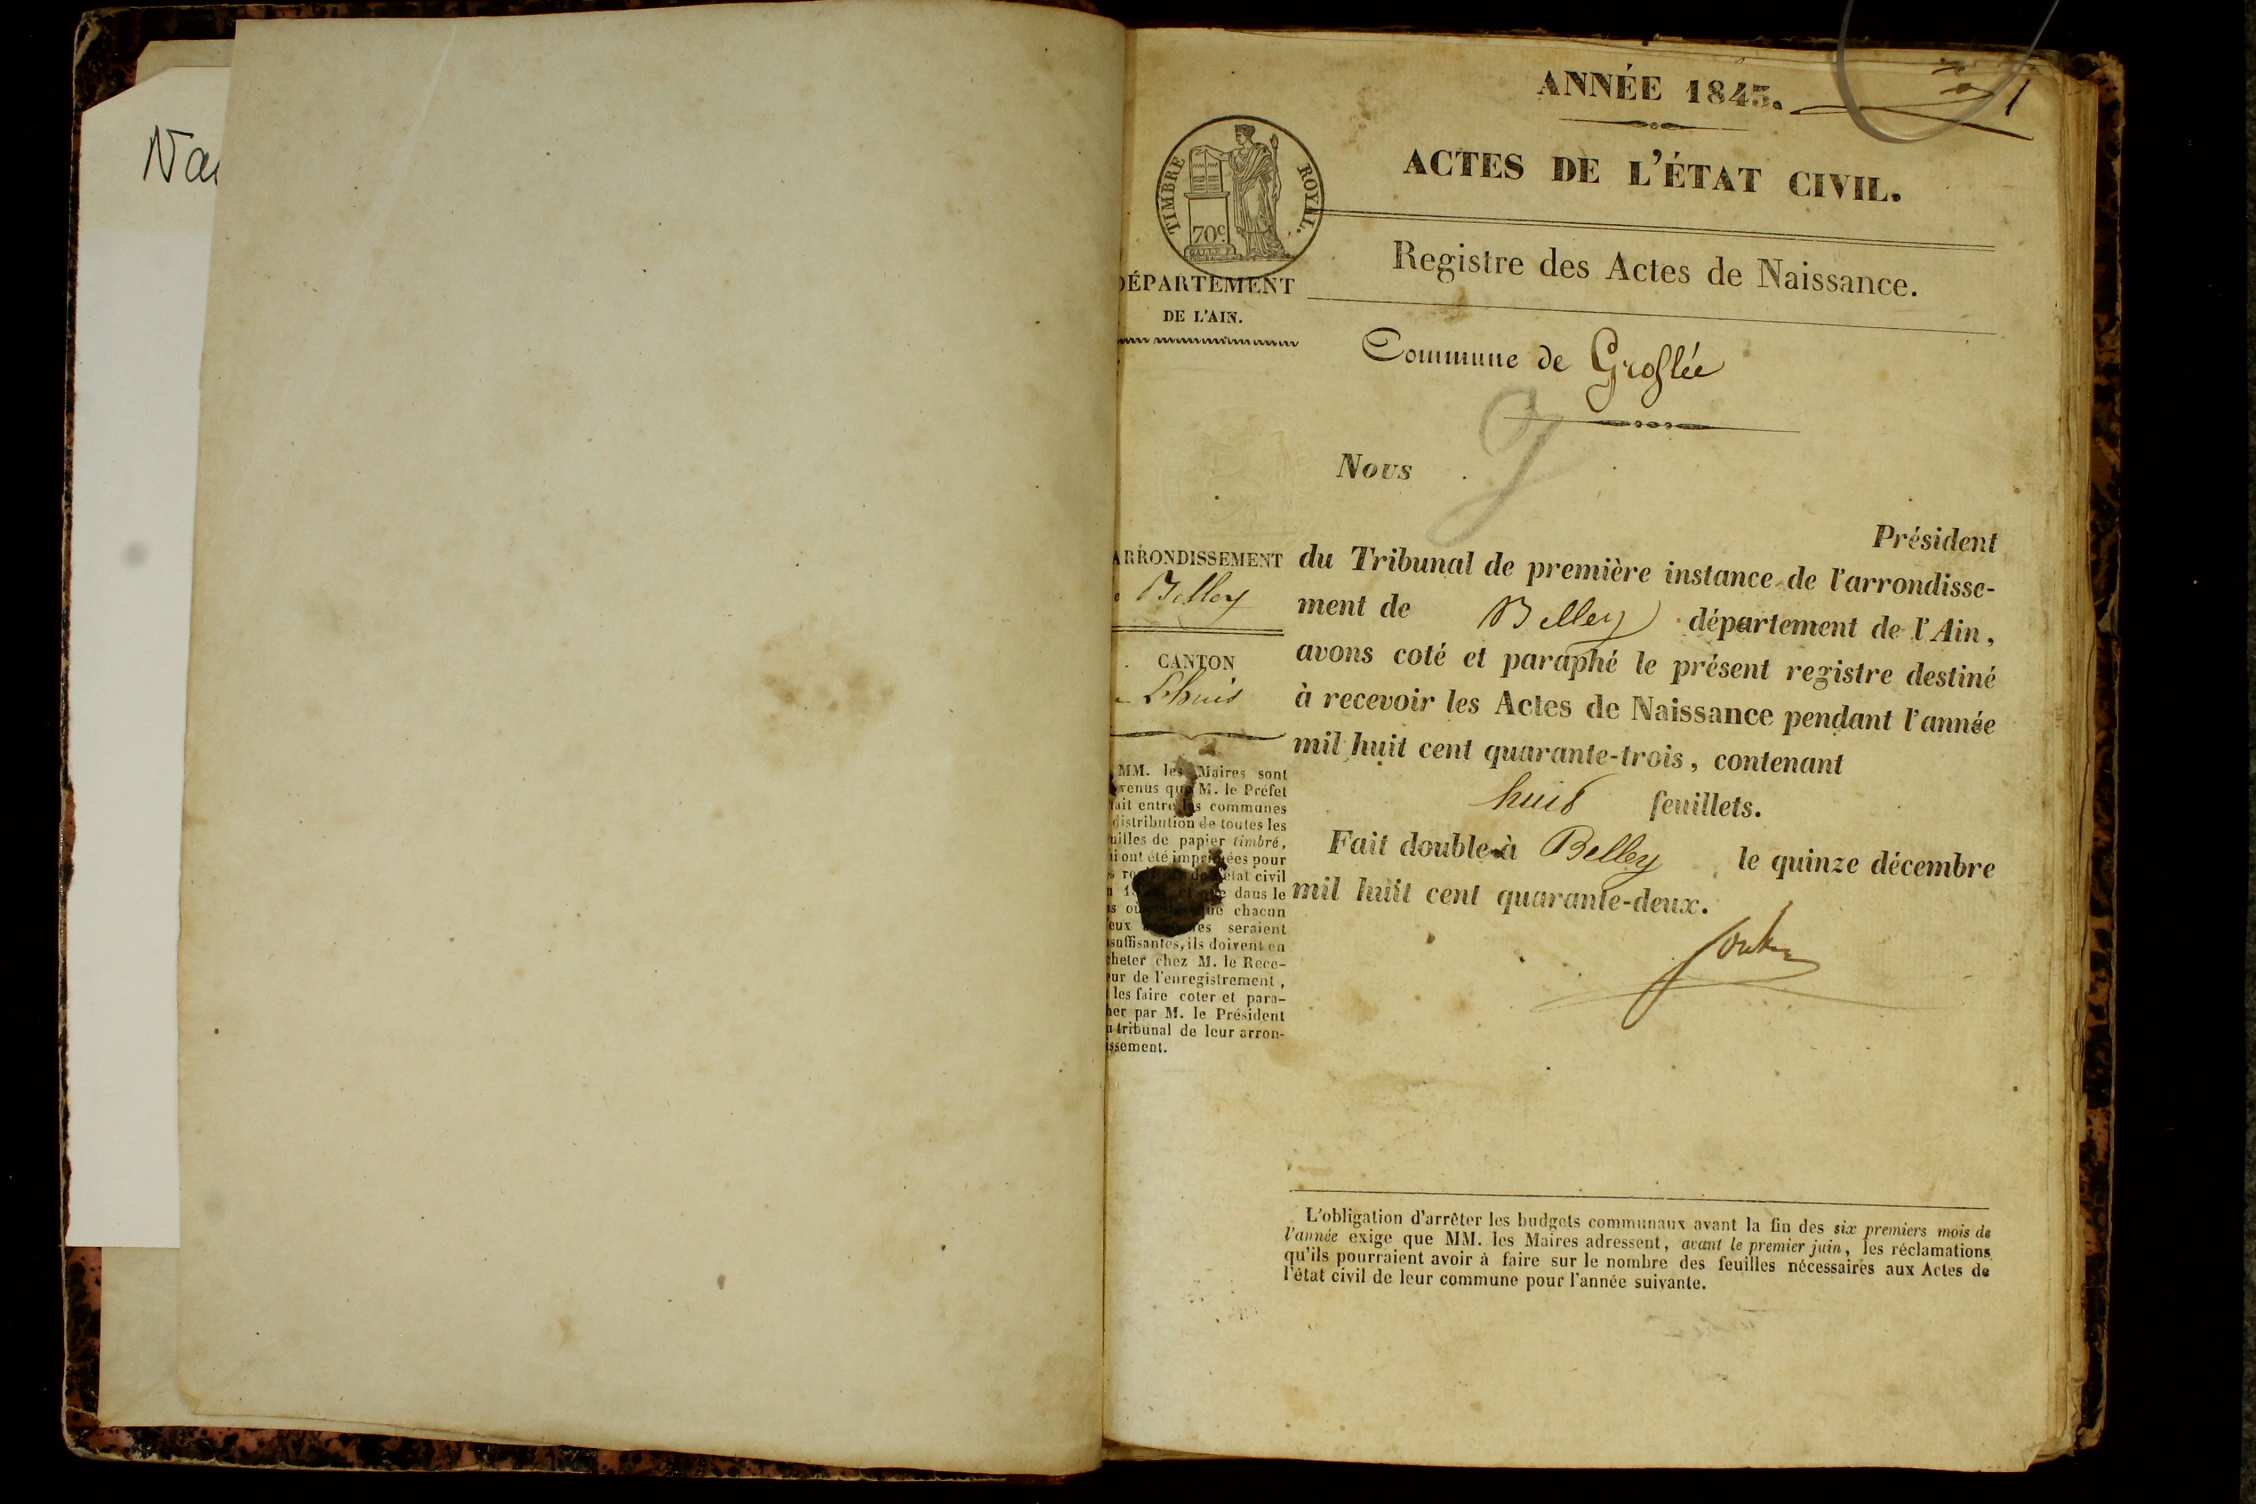 Nai
ANNÉE 1843.
1
ACTES DE L'ÉTAT CIVIL.
TIMBRE ROYAL.
70c
DÉPARTEMENT
DE L'AIN.
Registre des Actes de Naissance.
Commune de Groslée
Nous
Président
ARRONDISSEMENT
Belley
CANTON
Lhuis
du Tribunal de première instance de l'arrondisse-
ment de Belley département de l'Ain,
avons coté et paraphé le présent registre destiné
à recevoir les Actes de Naissance pendant l'année
mil huit cent quarante-trois, contenant
huit feuillets.
Fait double à Belley le quinze décembre
mil huit cent quarante-deux.
MM. les Maires sont
venus que M. le Préfet
fait entre les communes
distribution de toutes les
uilles de papier timbré,
i ont été imprimées pour
état civil
dans le
chacun
seraient
suffisantes, ils doivent en
cheter chez M. le Rece-
ur de l'enregistrement,
les faire coter et para-
her par M. le Président
u tribunal de leur arron-
issement.
L'obligation d'arrêter les budgets communaux avant la fin des six premiers mois de
l'année exige que MM. les Maires adressent, avant le premier juin, les réclamations
qu'ils pourraient avoir à faire sur le nombre des feuilles nécessaires aux Actes de
l'état civil de leur commune pour l'année suivante.